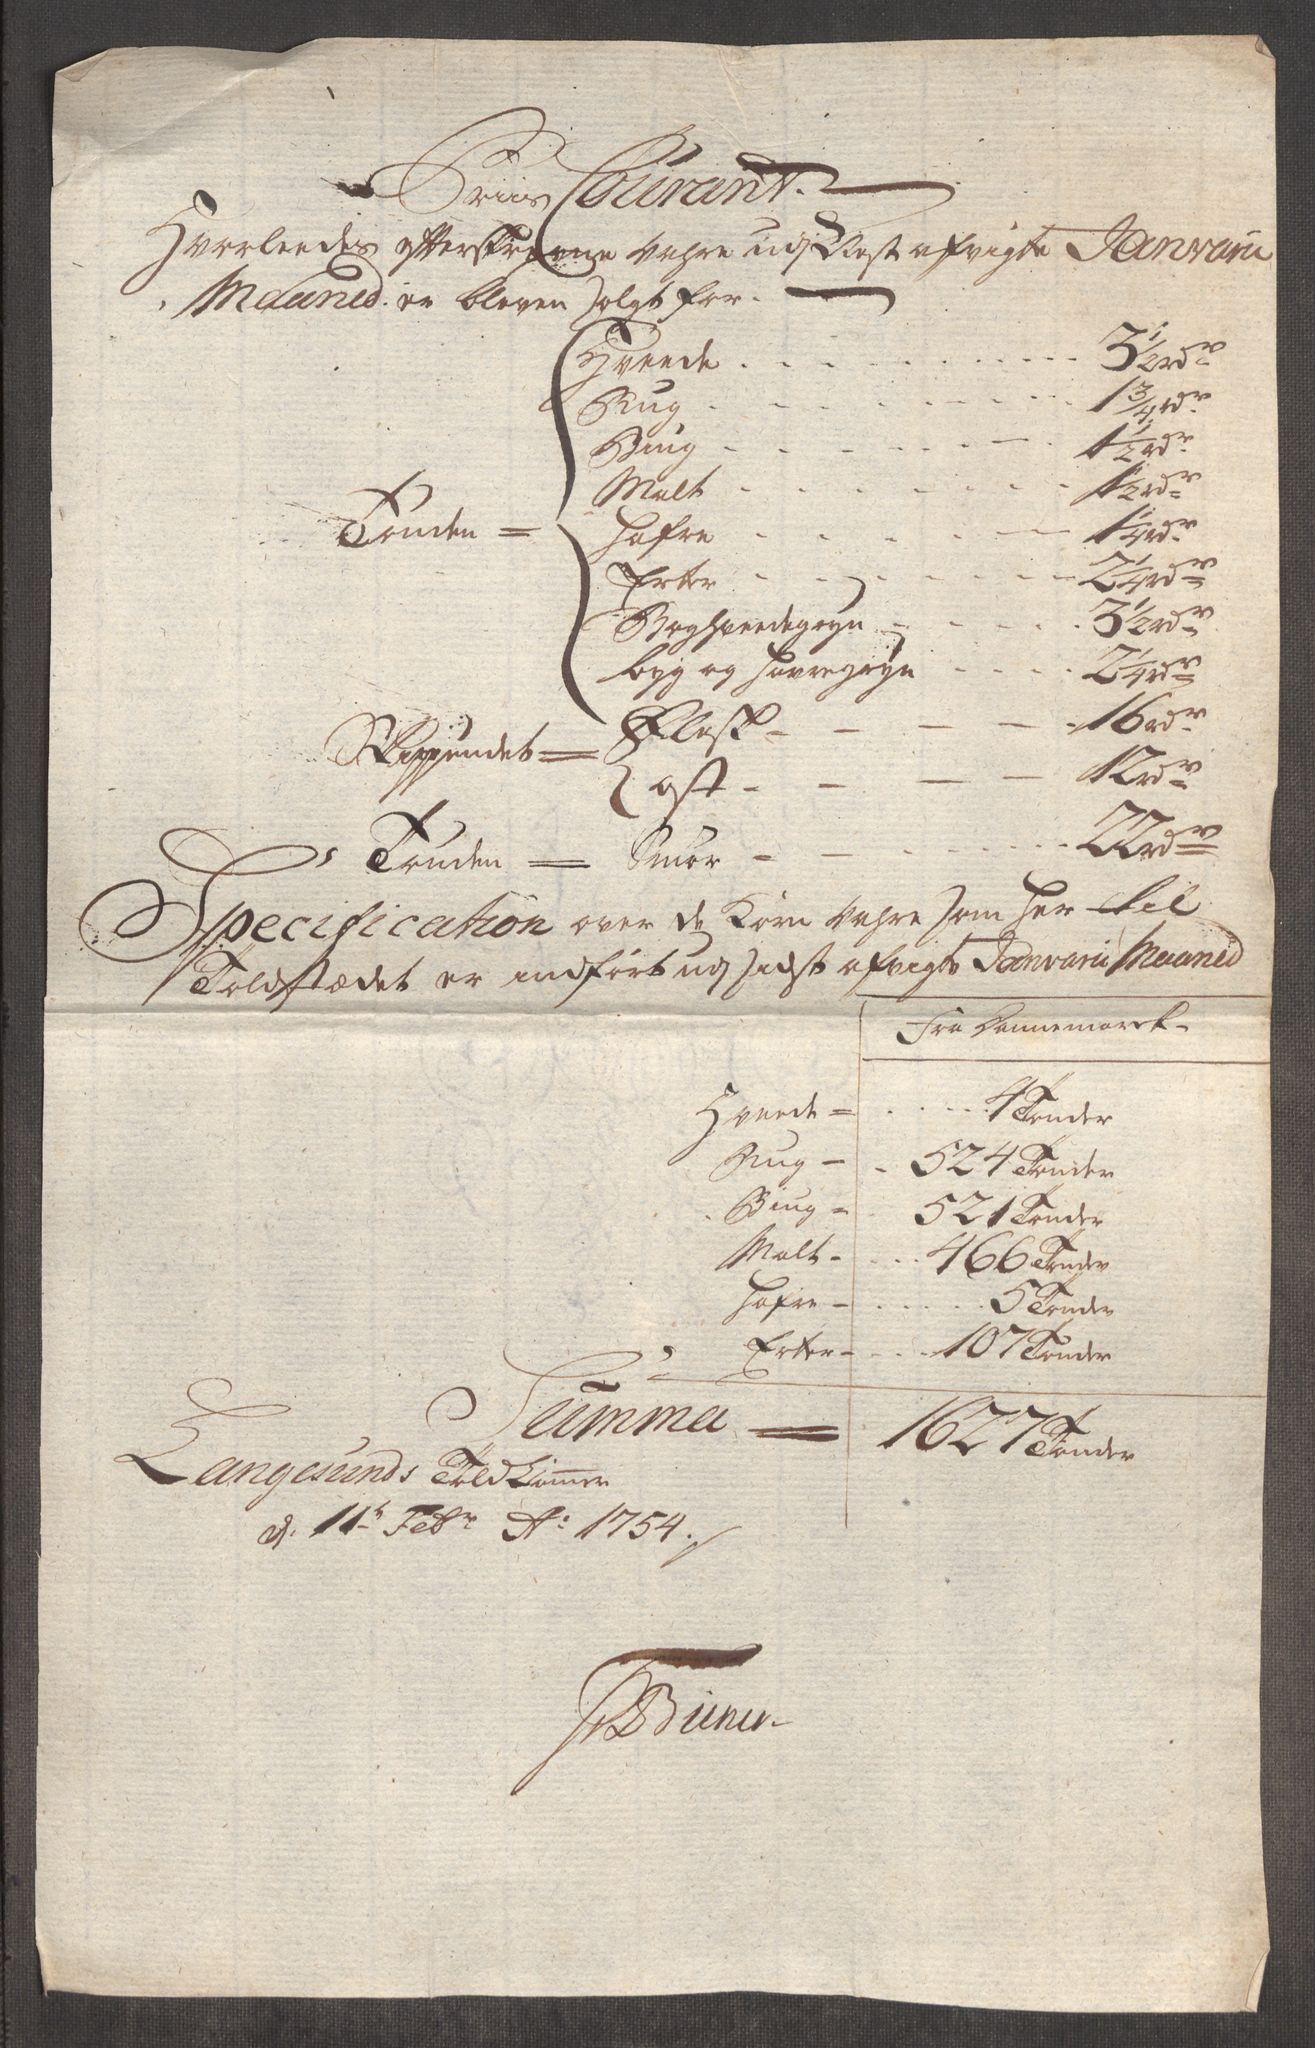 Priis Courant.
Hvorleedes efterskrevne Vahre udj Nest afvigte Janvarii
Maaned. er bleven solgt for.
Hveede - - - 3 1/2 rdr
Rug - - - 1 3/4 rdr
Biug - - - 1 1/2 rdr
Malt - - - 1 1/2 rdr
Tønden = Hafre - - - 1 1/4 rdr
Erter - - - 2 1/4 rdr
Boghveedegryn - - - 3 1/2 rdr
byg og Havregryn - - - 2 1/4 rdr
Skippundet = Flesk - - - 16 rdr
ost - - - 12 rdr
Tønden = Smør - - - 22 rdr
Specification over de Korn Vahre som her til
Toldstædet er indført udj sidst afvigte Janvarii Maaned
Fra Dannemarck
Hveede = 4 Tønder
Rug - 524 Tønder
Biug = 521 Tønder
Malt - 466 Tønder
Hafre - 5 Tønder
Erter - 107 Tønder
Summa = 1627 Tønder
Langesunds Told Kammer
d. 11t Febr Ao 1754.